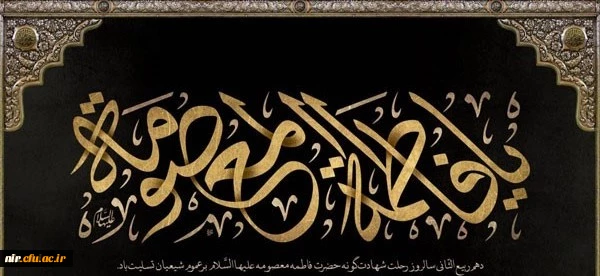 یا فاطمة المعصومة
علیهاالسلام
دهم ربیع الثانی سالروز رحلت شهادت‌گونه حضرت فاطمه معصومه علیهاالسّلام بر عموم شیعیان تسلیت باد.
nir.cfu.ac.ir